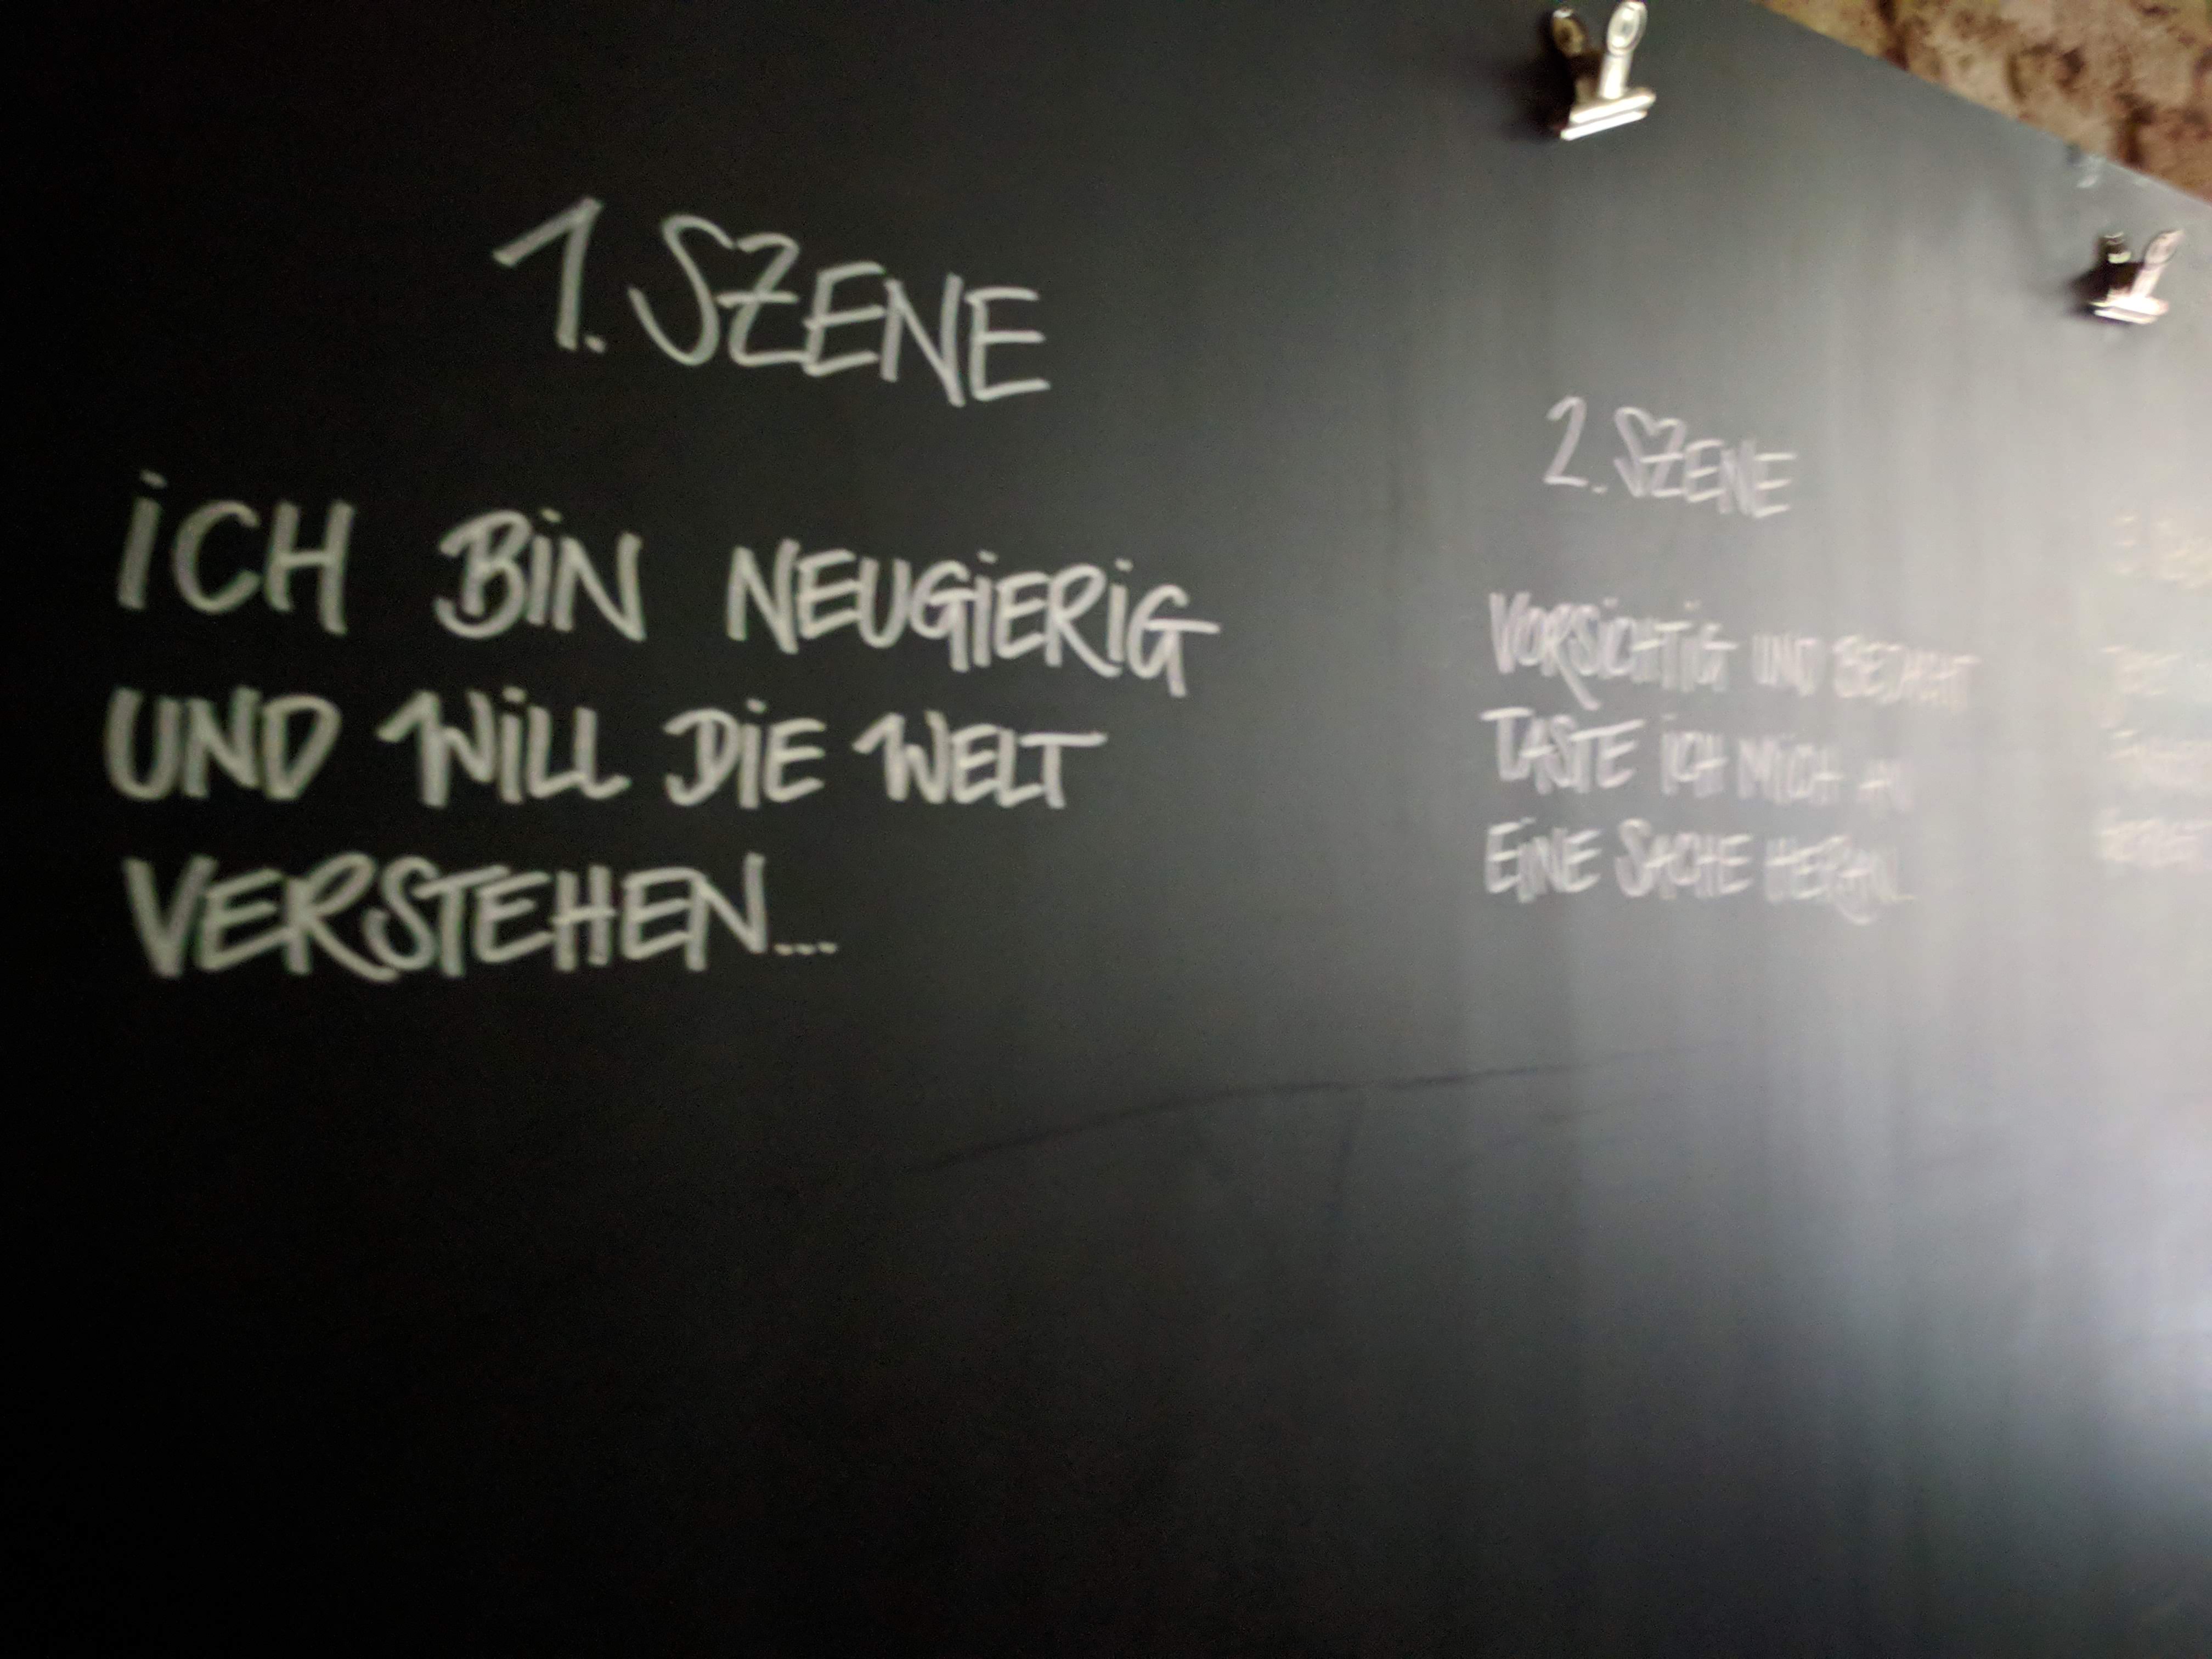 1. SZENE
ICH BIN NEUGIERIG
UND WILL DIE WELT
VERSTEHEN...
2. SZENE
VORSICHTIG UND BEDACHT
TASTE ICH MICH AN
EINE SACHE HERAN...